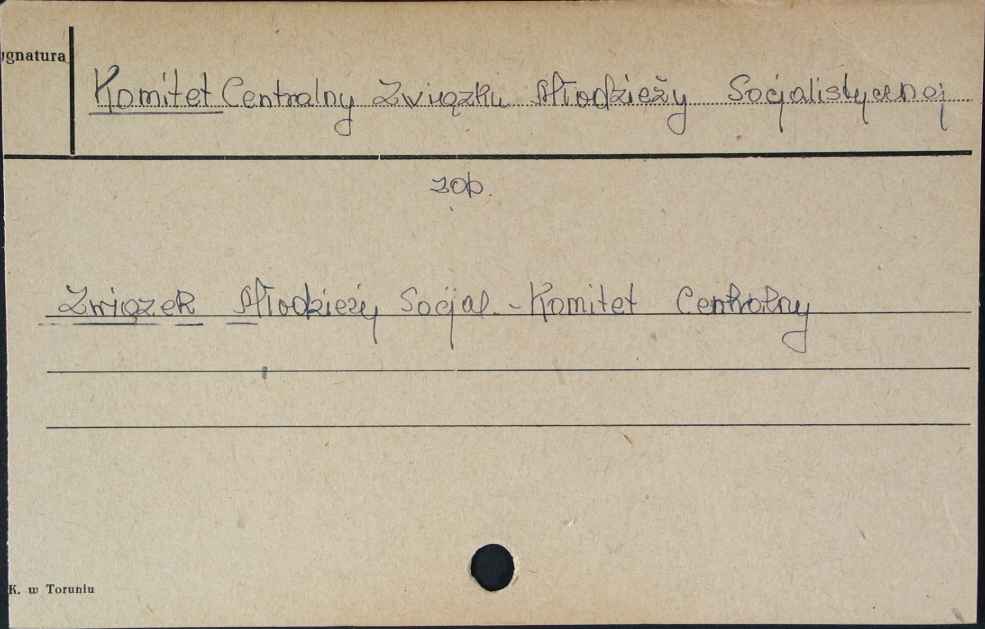 ygnatura
Komitet Centralny Związku Młodzieży Socjalistycznej
zob.
Związek Młodzieży Socjal. - Komitet Centralny
K. w Toruniu